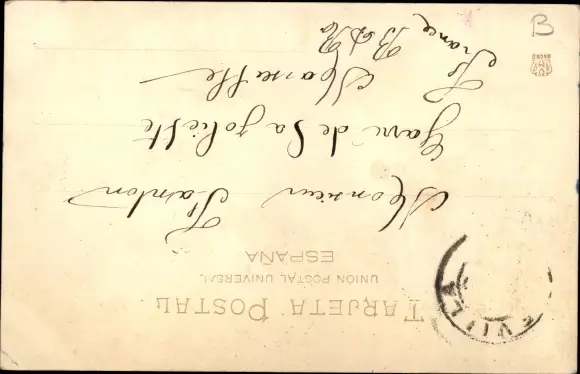 TARJETA POSTAL
UNIÓN POSTAL UNIVERSAL
ESPAÑA
Monsieur
Gare de la joliette
Marseille
France B d R
B